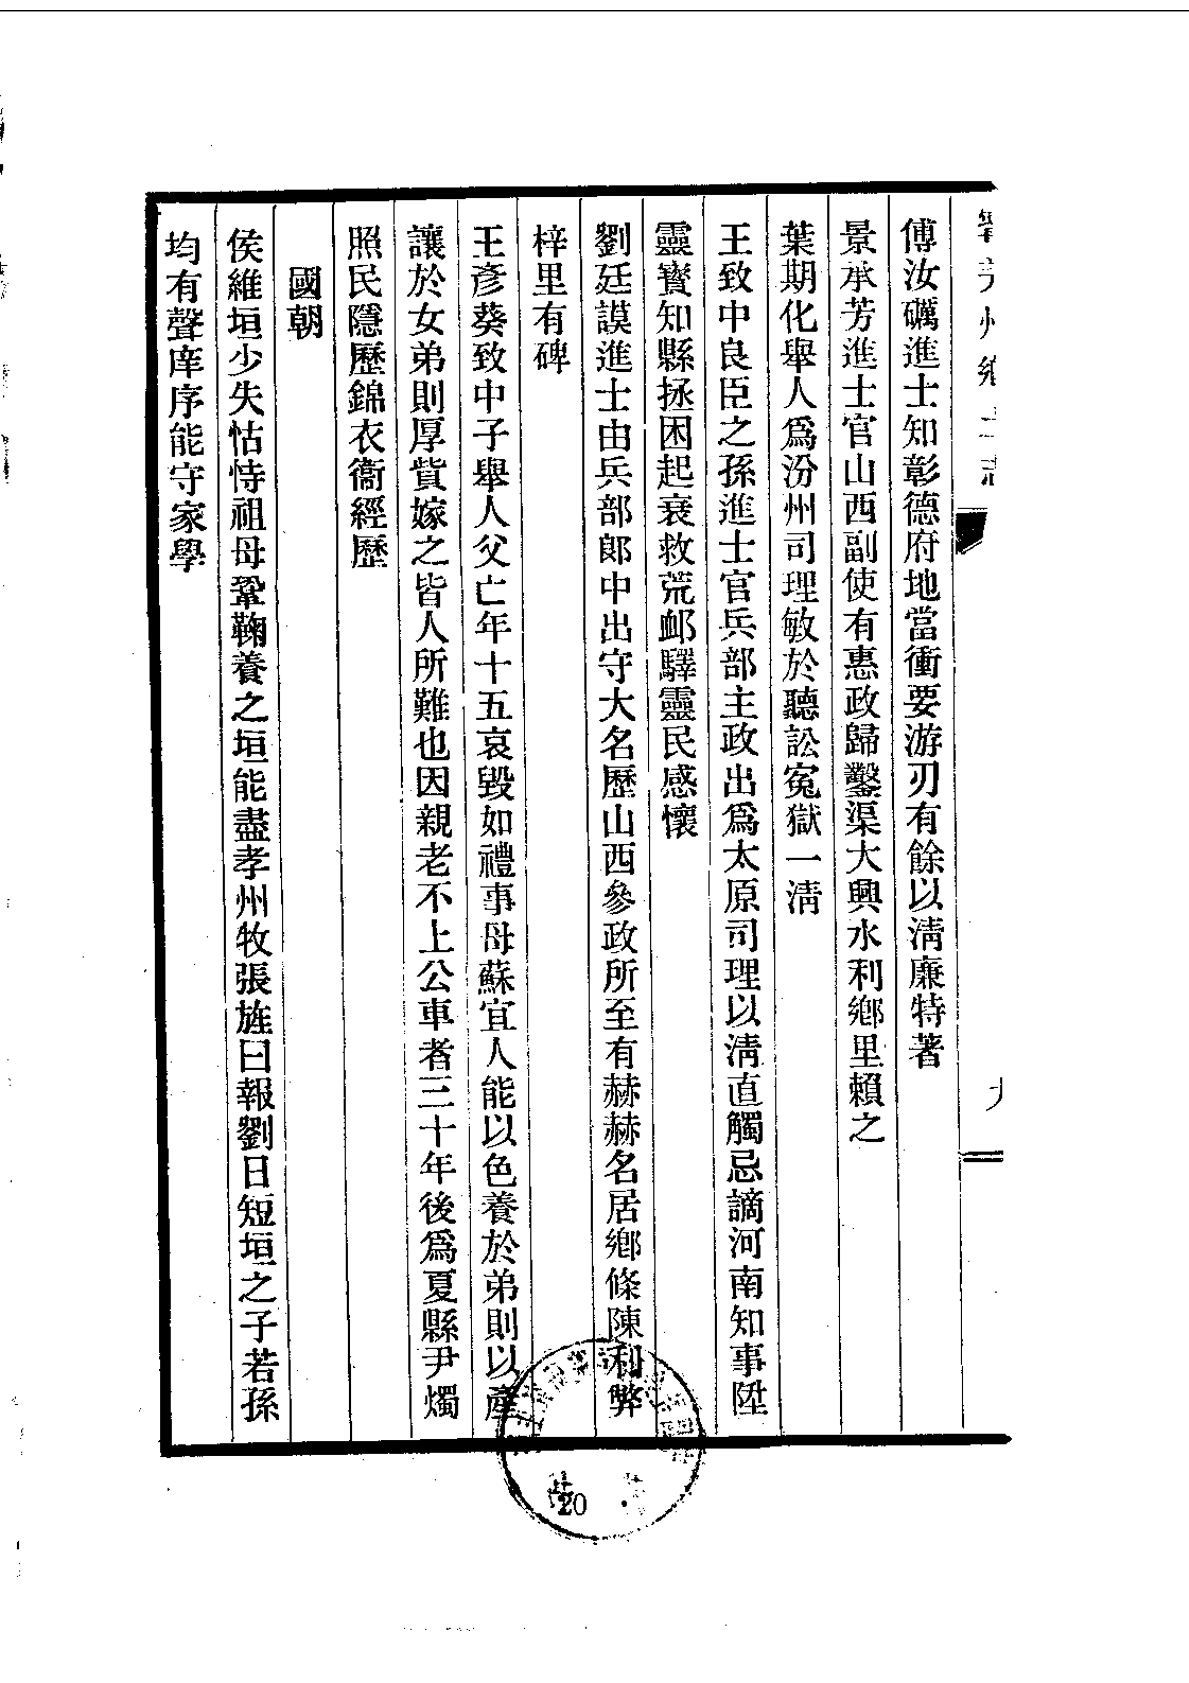 傅汝礪進士知彰德府地當衝要游刃有餘以淸廉特著
景承芳進士官山西副使有惠政歸鑿渠大興水利鄕里賴之
葉期化舉人爲汾州司理敏於聽訟寃獄一淸
王致中良臣之孫進士官兵部主政出爲太原司理以淸直觸忌謫河南知事陞
靈寳知縣拯困起衰救荒邮驛靈民感懷
劉廷謨進士由兵部郞中出守大名歷山西參政所至有赫赫名居鄕條陳利弊
梓里有碑
王彥葵致中子舉人父亡年十五哀毀如禮事母蘇宜人能以色養於弟則以產
讓於女弟則厚貲嫁之皆人所難也因親老不上公車者三十年後爲夏縣尹燭
照民隱歷錦衣衞經歷
國朝
侯維垣少失怙恃祖母鞏鞠養之垣能盡孝州牧張旌曰報劉日短垣之子若孫
均有聲庠序能守家學
20